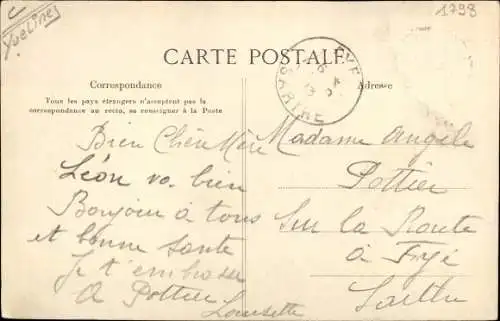 Yvelines
1798
CARTE POSTALE
Correspondance
Tous les pays étrangers n'acceptent pas la
correspondance au recto, se renseigner à la Poste
Adresse
SARTHE
Bien Chère Mère
Léon va bien
Bonjour à tous
et bonne sante
Je t'embrasse
A Pottier
Lousette
Madame Angèle
Pottier
Sur la Route
à Fyé
Sarthe